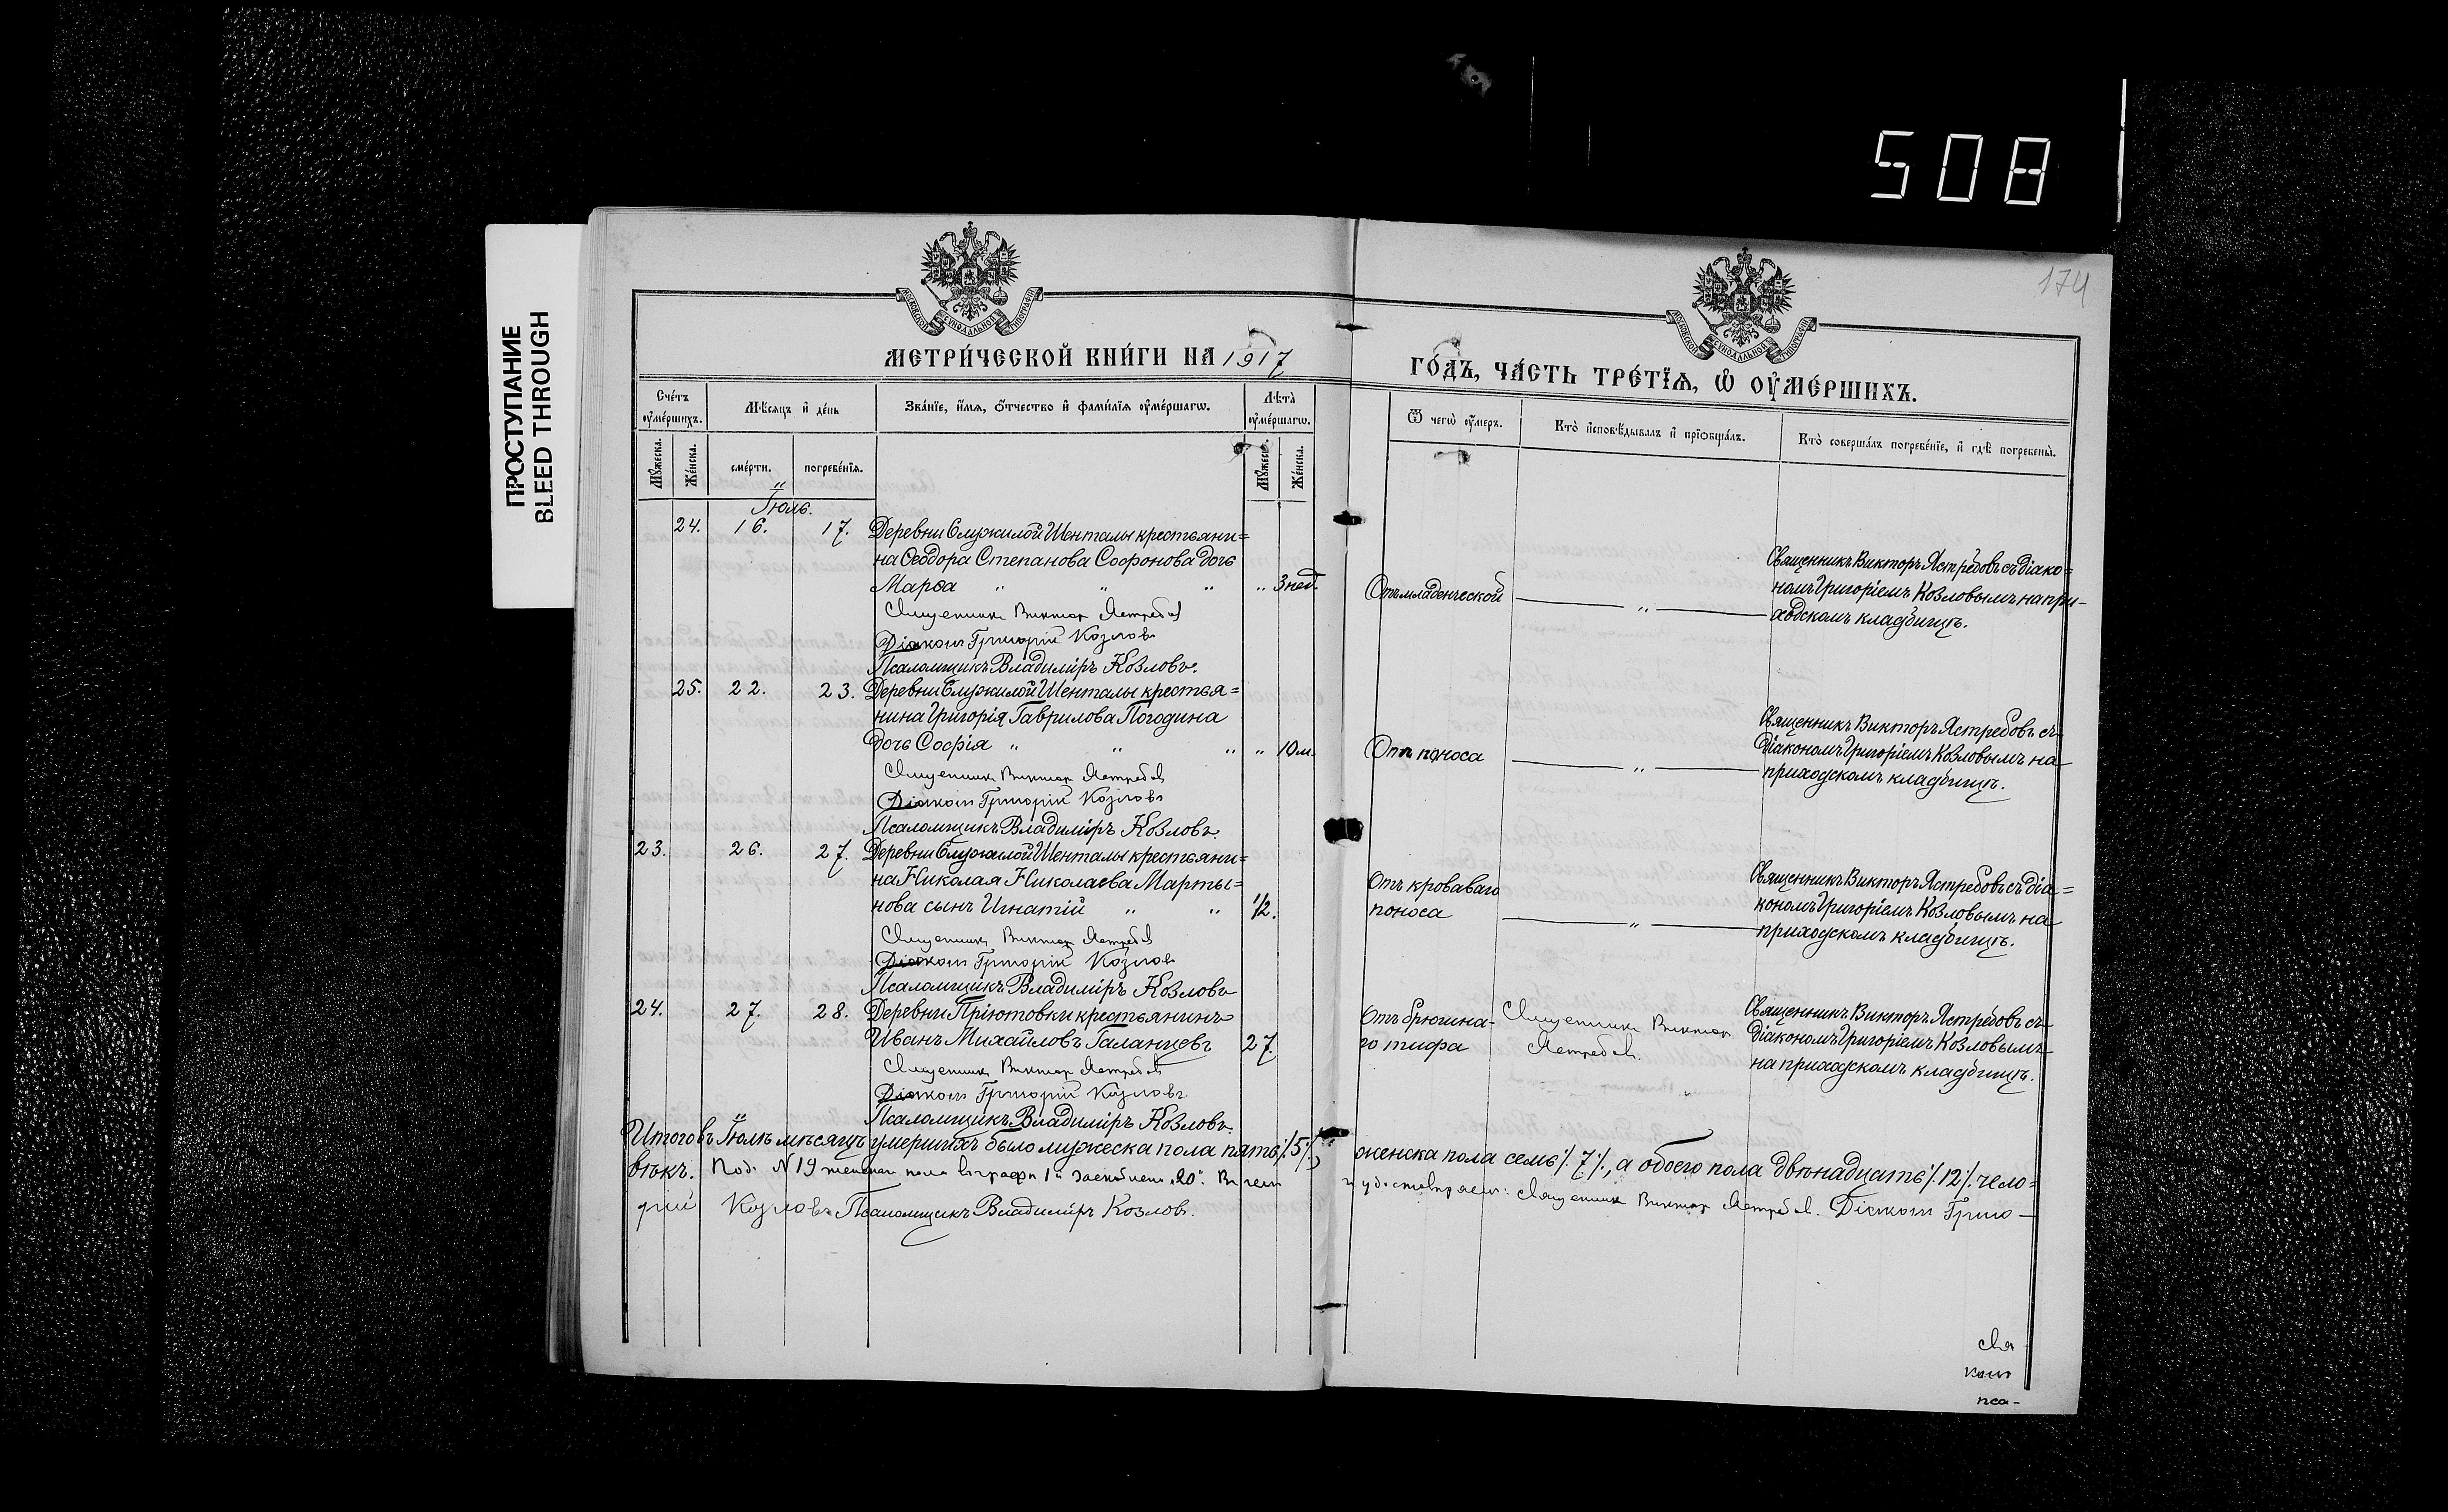 508
ПРОСТУПАНИЕ
BLEED THROUGH
174
МОСКОВСКОЙ СУНОДАЛЬНОЙ ТИПОГРАФІИ
МОСКОВСКОЙ СУНОДАЛЬНОЙ ТИПОГРАФІИ
МЕТРИ́ЧЕСКОЙ КНИ́ГИ НА 1917
ГО́ДЪ, ЧА́СТЬ ТРЕ́ТЇѦ, Ѡ ОУМЕ́РШИХЪ.
Сче́тъ оумершихъ.
Мѣсяцъ и де́нь
Зва́нїе, и́мя, о́тчество и фами́лїя оуме́ршагѡ.
Лѣта̀ оуме́ршагѡ.
Мужеска.
Же́нска.
сме́рти.
погребе́нїя.
Мужеск.
Же́нска.
Ѿ чегѡ̀ оумеръ.
Кто̀ исповѣдывалъ и прїѡбща́лъ.
Кто̀ соверша́лъ погребе́нїе, и гдѣ погребены̀.
Іюль.
24. 16. 17. Деревни Служилой Шенталы крестьяни=
на Ѳеодора Степанова Софонова дочь
Марѳа " " " " 3 нед.
Священникъ Викторъ Ястребовъ
Діаконъ Григорій Козловъ
Псаломщикъ Владиміръ Козловъ.
Отъ младенческой
"
Священникъ Викторъ Ястребовъ съ діако=
номъ Григоріемъ Козловымъ на при-
ходскомъ кладбищѣ.
25. 22. 23. Деревни Служилой Шенталы крестья=
нина Григорія Гаврилова Погодина
дочь Софія " " " " 10 м.
Священникъ Викторъ Ястребовъ
Діаконъ Григорій Козловъ
Псаломщикъ Владиміръ Козловъ.
Отъ поноса
"
Священникъ Викторъ Ястребовъ съ
діакономъ Григоріемъ Козловымъ на
приходскомъ кладбищѣ.
23. 26. 27. Деревни Служилой Шенталы крестьяни=
на Николая Николаева Марты=
нова сынъ Игнатій " " 1/2.
Священникъ Викторъ Ястребовъ
Діаконъ Григорій Козловъ
Псаломщикъ Владиміръ Козловъ
Отъ кроваваго
поноса
"
Священникъ Викторъ Ястребовъ съ діа=
кономъ Григоріемъ Козловымъ на
приходскомъ кладбищѣ.
24. 27. 28. Деревни Пріютовки крестьянинъ
Иванъ Михайловъ Галанцевъ 27.
Священникъ Викторъ Ястребовъ
Діаконъ Григорій Козловъ
Псаломщикъ Владиміръ Козловъ.
Отъ брюшна-
го тифа
Священникъ Викторъ
Ястребовъ.
Священникъ Викторъ Ястребовъ съ
діакономъ Григоріемъ Козловымъ
на приходскомъ кладбищѣ.
Итого въ Іюлѣ мѣсяцѣ умершихъ было мужеска пола пять ⁒5⁒, женска пола семь ⁒7⁒, а обоего пола двѣнадцать ⁒12⁒ чело=
вѣкъ. Под. №19 женска пола въ графѣ 1й "20". Въ чемъ и удостовѣряемъ: Священникъ Викторъ Ястребовъ. Діаконъ Григо-
рій Козловъ Псаломщикъ Владиміръ Козлов.
Свя
кон
пса-